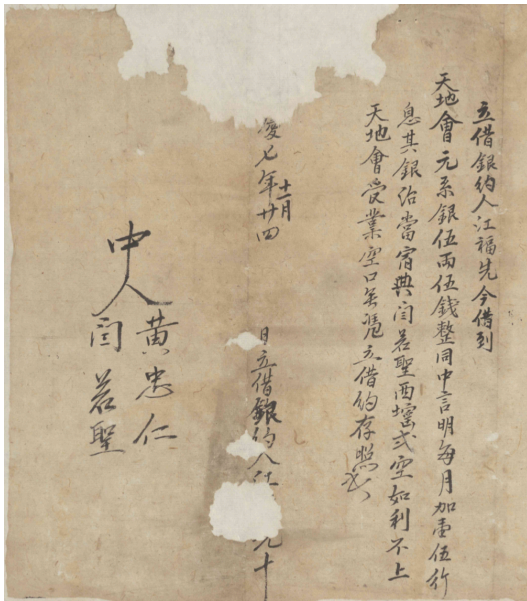 立借銀約人江福先今借到
天地會元系銀伍兩伍錢整同中言明每月加壹伍行
息其銀治當宵典閆若聖西壋弍空如利不上
天地會受業空口無憑立借約存照
慶七年十一月廿四
日立借銀約人江 十
中人 黃忠仁
閆若聖